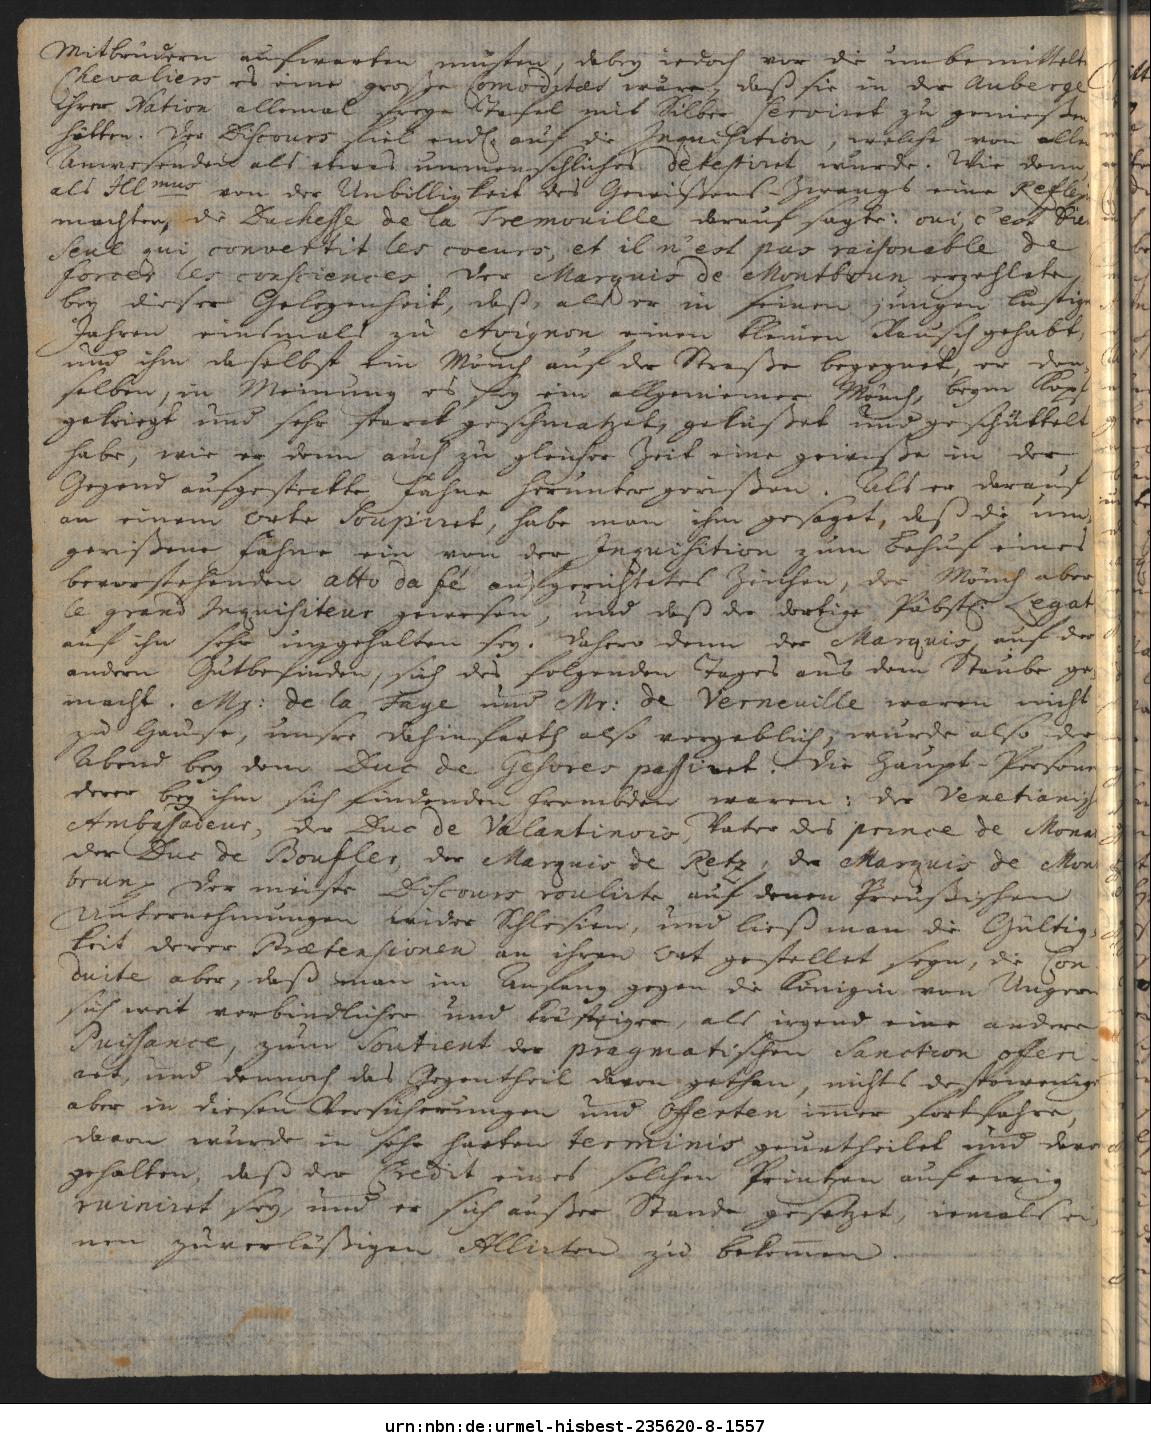 Mitbrüdern aufwarten müsten, dabey iedoch vor die unbemittelte
Chevaliers es eine große Comoditæt wäre, daß sie in der Auberge
Ihrer Nation allemal freye Tafel mit Silber serviret zu genießen
hätten. Der Discours fiel endl. auf die Inquisition, welche von allen
Anwesenden als etwas unmenschliches detestiret wurde. Wie denn
als Ill^mus von der Unbilligkeit des Gewißens-Zwangs eine Reflex
machten, die Duchesse de la Tremouille darauf sagte: oui, c'est Dieu
seul qui convertit les coeurs, et il n'est pas raisonable de
forcer les consciences. Der Marquis de Montbrun erzehlete
bey dieser Gelegenheit, daß, als er in seinen jungen lustigen
Jahren einsmals zu Avignon einen kleinen Rausch gehabt,
und ihm daselbst ein Mönch auf der Straße begegnet, er den-
selben, in Meinung es sey ein allgemeiner Mönch, beym Kopf
gekriegt und sehr starck geschmatzet, geküßet und geschüttelt
habe, wie er denn auch zu gleicher Zeit eine gewiße in der
Gegend aufgesteckte Fahne herunter gerißen. Als er darauf
an einem Orte soupiret, habe man ihm gesaget, daß die um-
gerißene Fahne ein von der Inquisition zum Behuf eines
bevorstehenden atto da fé aufgerichtetes Zeichen, der Mönch aber
le grand Inquisiteur gewesen, und daß der dortige Päbstl. Legat
auf ihn sehr ungehalten sey. Dahero denn der Marquis auf der
andern Gutbefinden, sich des folgenden Tages aus dem Staube ge-
macht. Mr: de la Faye und Mr: de Verneuille waren nicht
zu Hause, unsre dahinfarth also vergeblich, wurde also der
Abend bey dem Duc de Gesvres passiret. Die Haupt-Persone
derer bey ihm sich findenden Frembden waren: der Venetianisch
Ambassadeur, der Duc de Valantinois, Vater des prince de Mona
der Duc de Boufler, der Marquis de Retz, der Marquis de Mon
brun. Der meiste Discours roulirte auf denen Preußischen
Unternehmungen wider Schlesien, und ließ man die Gültig-
keit derer Prætensionen an ihren Ort gestellet seyn, die Con-
duite aber, daß man im Anfang gegen die Königin von Ungern
sich weit verbindlicher und kräftiger, als irgend eine andere
Puissance, zum Soutient der pragmatischen Sanction offeri-
ret, und dennoch das Gegentheil davon gethan, nichts destoweniger
aber in diesen Versicherungen und Offerten immer fortfahre,
davon wurde in sehr harten terminis geurtheilet und davor
gehalten, daß der Credit eines solchen Printzen auf ewig
ruiniret sey, und er sich außer Stande gesetzet, iemals ei-
nen zuverläßigen Allirten zu bekommen.
urn:nbn:de:urmel-hisbest-235620-8-1557